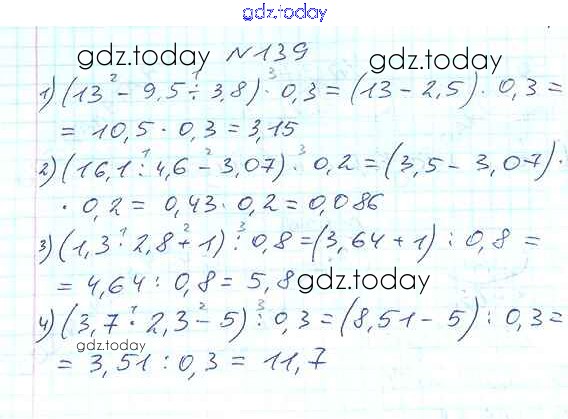 gdz.today
gdz.today №139 gdz.today
1) (13 - 9,5 ÷ 3,8) · 0,3 = (13 - 2,5) · 0,3 =
= 10,5 · 0,3 = 3,15
2) (16,1 : 4,6 - 3,07) · 0,2 = (3,5 - 3,07) ·
· 0,2 = 0,43 · 0,2 = 0,086
3) (1,3 · 2,8 + 1) : 0,8 = (3,64 + 1) : 0,8 =
= 4,64 : 0,8 = 5,8 gdz.today
4) (3,7 · 2,3 - 5) : 0,3 = (8,51 - 5) : 0,3 =
gdz.today
= 3,51 : 0,3 = 11,7